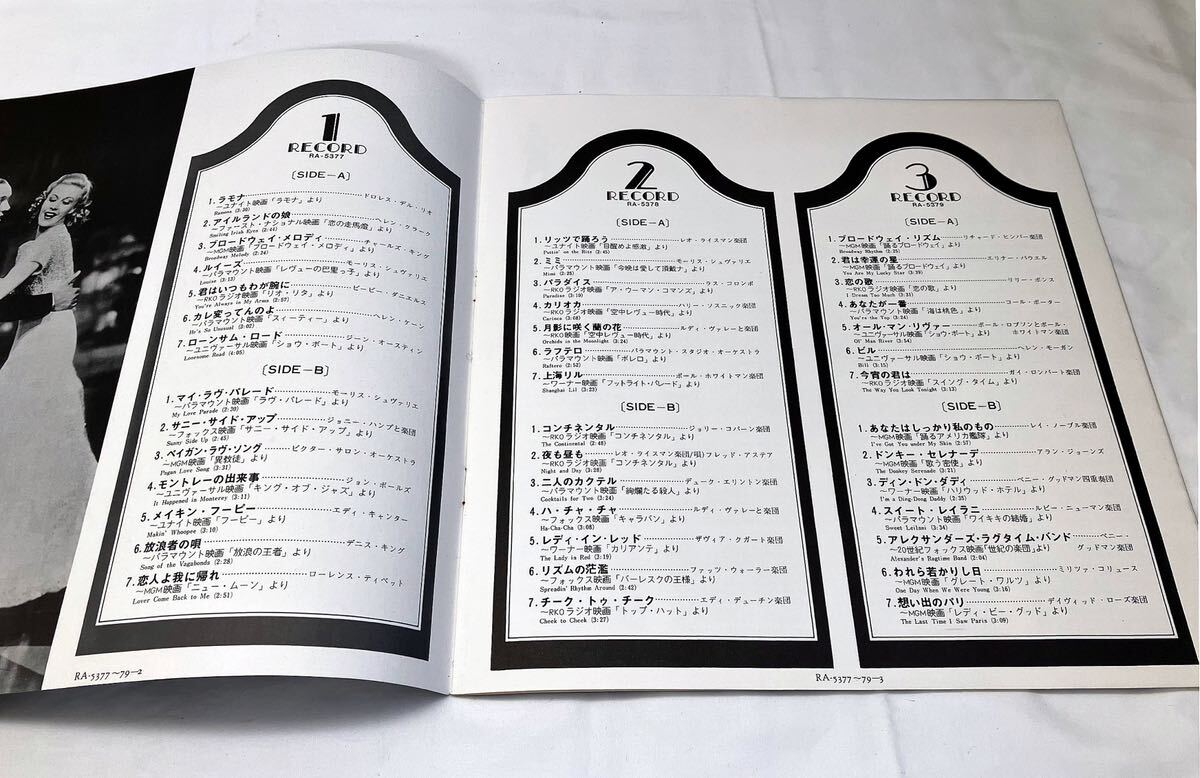 1
RECORD
RA-5377
[SIDE-A]
1. ラモナ……ドロレス・デル・リオ
〜ユナイト映画「ラモナ」より
Ramona (3:30)
2. アイルランドの娘……ヘレン・クラーク
〜ファースト・ナショナル映画「恋の走馬燈」より
Smiling Irish Eyes (2:44)
3. ブロードウェイ・メロディ……チャールズ・キング
〜MGM映画「ブロードウェイ・メロディ」より
Broadway Melody (2:50)
4. ルイーズ……モーリス・シュヴァリエ
〜パラマウント映画「レヴューの巴里っ子」より
Louise (3:13)
5. 君はいつもわが腕に……ビービー・ダニエルス
〜RKOラジオ映画「リオ・リタ」より
You're Always in My Arms (2:57)
6. カレ変ってんのよ……ヘレン・ケーン
〜パラマウント映画「スィーティー」より
He's So Unusual (3:02)
7. ローンサム・ロード……ジーン・オースティン
〜ユニヴァーサル映画「ショウ・ボート」より
Lonesome Road (4:05)
[SIDE-B]
1. マイ・ラヴ・パレード……モーリス・シュヴァリエ
〜パラマウント映画「ラヴ・パレード」より
My Love Parade (2:30)
2. サニー・サイド・アップ……ジョニー・ハンプ七楽団
〜フォックス映画「サニー・サイド・アップ」より
Sunny Side Up (2:45)
3. ペイガン・ラヴ・ソング……ビクター・サロン・オーケストラ
〜MGM映画「異教徒」より
Pagan Love Song (3:31)
4. モントレーの出来事……ジョン・ボールズ
〜ユニヴァーサル映画「キング・オブ・ジャズ」より
It Happened in Monterey (3:11)
5. メイキン・フーピー……エディ・キャンター
〜ユナイト映画「フーピー」より
Makin' Whoopee (3:10)
6. 放浪者の唄……デニス・キング
〜パラマウント映画「放浪の王者」より
Song of the Vagabonds (2:28)
7. 恋人よ我に帰れ……ローレンス・ティベット
〜MGM映画「ニュー・ムーン」より
Lover Come Back to Me (2:51)
RA-5377〜79-2
2
RECORD
RA-5378
[SIDE-A]
1. リッツで踊ろう……レオ・ライスマン楽団
〜ユナイト映画「目醒めよ感激」より
Puttin' on the Ritz (2:45)
2. ミミ……モーリス・シュヴァリエ
〜パラマウント映画「今晩は愛して頂戴ナ」より
Mimi (2:25)
3. パラダイス……ラス・コロンボ
〜RKOラジオ映画「ア・ウーマン・コマンズ」より
Paradise (3:19)
4. カリオカ……ハリー・ソスニック楽団
〜RKOラジオ映画「空中レヴュー時代」より
Carioca (3:08)
5. 月影に咲く蘭の花……ルディ・ヴァレーと楽団
〜RKO映画「空中レヴュー時代」より
Orchids in the Moonlight (3:24)
6. ラフテロ……パラマウント・スタジオ・オーケストゥ
〜パラマウント映画「ボレロ」より
Raftero (2:52)
7. 上海リル……ポール・ホワイトマン楽団
〜ワーナー映画「フットライト・パレード」より
Shanghai Lil (3:23)
[SIDE-B]
1. コンチネンタル……ジョリー・コバーン楽団
〜RKOラジオ映画「コンチネンタル」より
The Continental (2:48)
2. 夜も昼も……レオ・ライスマン楽団/唄)フレッド・アステア
〜RKOラジオ映画「コンチネンタル」より
Night and Day (3:28)
3. 二人のカクテル……デューク・エリントン楽団
〜パラマウント映画「絢爛たる殺人」より
Cocktails for Two (3:24)
4. ハ・チャ・チャ……ルディ・ヴァレーと楽団
〜フォックス映画「キャラバン」より
Ha-Cha-Cha (3:08)
5. レディ・イン・レッド……ザヴィア・クガート楽団
〜ワーナー映画「カリアンテ」より
The Lady in Red (3:19)
6. リズムの茫濫……ファッツ・ウォーラー楽団
〜フォックス映画「バーレスクの王様」より
Spreadin' Rhythm Around (2:42)
7. チーク・トゥ・チーク……エディ・デューチン楽団
〜RKOラジオ映画「トップ・ハット」より
Cheek to Cheek (3:27)
3
RECORD
RA-5379
[SIDE-A]
1. ブロードウェイ・リズム……リチャード・ヒンバー楽団
〜MGM映画「踊るブロードウェイ」より
Broadway Rhythm (2:25)
2. 君は幸運の星……エリナー・パウエル
〜MGM映画「踊るブロードウェイ」より
You Are My Lucky Star (3:39)
3. 恋の歌……リリー・ポンス
〜RKOラジオ映画「恋の歌」より
I Dream Too Much (3:31)
4. あなたが一番……コール・ポーター
〜パラマウント映画「海は桃色」より
You're the Top (3:24)
5. オール・マン・リヴァー……ポール・ロブソンとポール・ホワイトマン楽団
〜ユニヴァーサル映画「ショウ・ボート」より
Ol' Man River (3:54)
6. ビル……ヘレン・モーガン
〜ユニヴァーサル映画「ショウ・ボート」より
Bill (3:15)
7. 今宵の君は……ガイ・ロンバート楽団
〜RKOラジオ映画「スイング・タイム」より
The Way You Look Tonight (3:13)
[SIDE-B]
1. あなたはしっかり私のもの……レイ・ノーブル楽団
〜MGM映画「踊るアメリカ艦隊」より
I've Got You under My Skin (2:57)
2. ドンキー・セレナーデ……アラン・ジョーンズ
〜MGM映画「歌う密使」より
The Donkey Serenade (3:21)
3. ディン・ドン・ダディ……ベニー・グッドマン四重奏団
〜ワーナー映画「ハリウッド・ホテル」より
I'm a Ding-Dong Daddy (3:25)
4. スイート・レイラニ……ルビー・ニューマン楽団
〜パラマウント映画「ワイキキの結婚」より
Sweet Leilani (3:34)
5. アレクサンダーズ・ラグタイム・バンド……ベニー・グッドマン楽団
〜20世紀フォックス映画「世紀の楽団」より
Alexander's Ragtime Band (2:04)
6. われら若かりし日……ミリッツァ・コリュース
〜MGM映画「グレート・ワルツ」より
One Day When We Were Young (3:16)
7. 想い出のパリ……デイヴィッド・ローズ楽団
〜MGM映画「レディ・ビー・グッド」より
The Last Time I Saw Paris (3:09)
RA-5377〜79-3